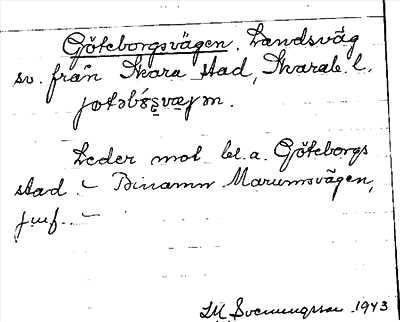 Göteborgsvägen. Landsväg
sv. från Skara stad, Skarab. l.
Leder mot bl.a. Göteborgs
stad. – Binamn Marumsvägen,
jmf. –
Svenungsson 1943